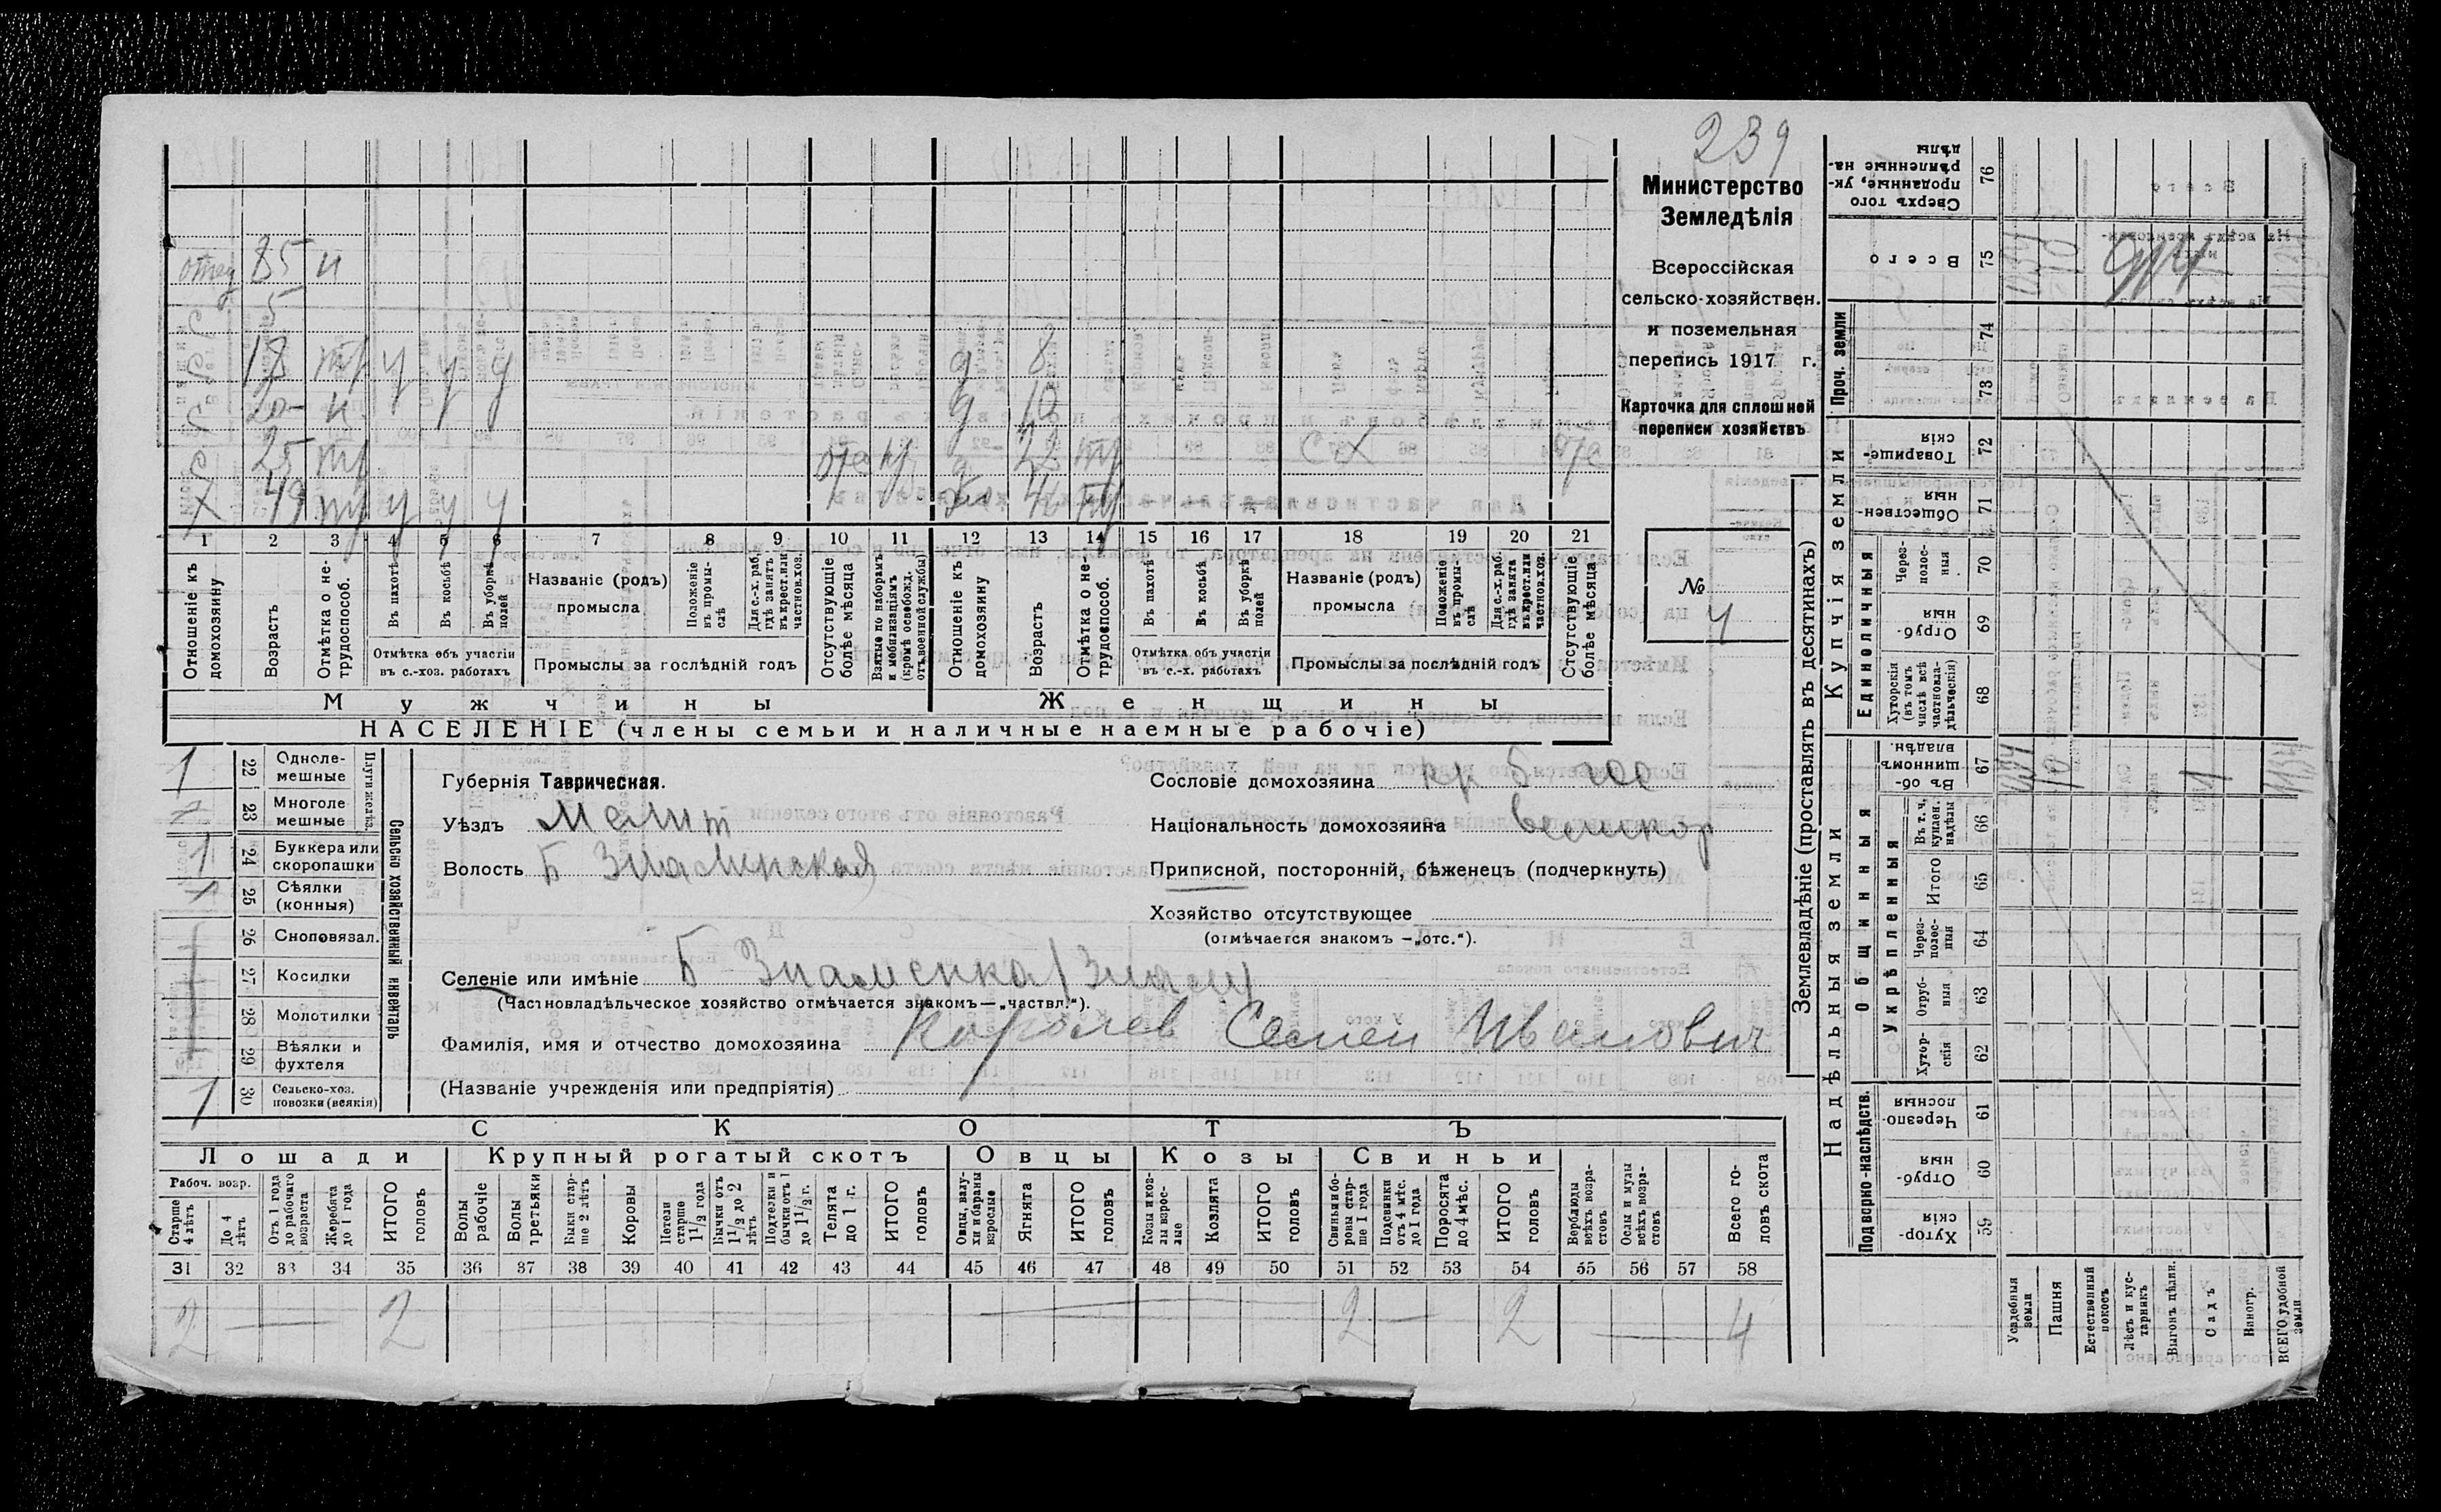 239
Министерство
Земледѣлія
Всероссійская
сельско-хозяйствен.
и поземельная
перепись 1917 г.
Карточка для сплошней
переписи хозяйствъ
№ 4
отец 85 н
С 5
С 18 тр у у у д 8
С 20 н д 10
С 25 тр отс д 22 тр СХ отс
Х 49 тр у у у Ж тр
1 2 3 4 5 6 7 8 9 10 11 12 13 14 15 16 17 18 19 20 21
Отношеніе къ домохозяину
Возрастъ
Отмѣтка о не-трудоспособ.
Въ пахотѣ
Въ косьбѣ
Въ уборкѣ полей
Отмѣтка объ участіи въ с.-хоз. работахъ
Названіе (родъ) промысла
Положеніе въ промы-слѣ
Для с.-х. раб. гдѣ занятъ въ крест. или частнов. хоз.
Промыслы за гослѣдній годъ
Отсутствующіе болѣе мѣсяца
Взятые по наборамъ и мобилизаціямъ (кромѣ освобожд. отъ военной службы)
Отношеніе къ домохозяину
Возрастъ
Отмѣтка о не-трудоспособ.
Въ пахотѣ
Въ косьбѣ
Въ уборкѣ полей
Отмѣтка объ участіи въ с.-х. работахъ
Названіе (родъ) промысла
Положеніе въ промы-слѣ
Для с.-х. раб. гдѣ занята въ крест. или частнов. хоз.
Промыслы за послѣдній годъ
Отсутствующіе болѣе мѣсяца
Мужчины Женщины
НАСЕЛЕНІЕ (члены семьи и наличные наемные рабочіе)
1 22 Однолемешные
23 Многоле мешные
Плуги желѣз.
1 24 Буккера или скоропашки
25 Сѣялки (конныя)
26 Сноповязал.
27 Косилки
28 Молотилки
29 Вѣялки и фухтеля
1 30 Сельско-хоз. повозки (всякія)
Сельско хозяйственный инвентарь
Губернія Таврическая.
Уѣздъ Мелит
Волость Б Знаменская
Селеніе или имѣніе Б Знаменка / Знам
(Частновладѣльческое хозяйство отмѣчается знакомъ—„частвл.“).
Фамилія, имя и отчество домохозяина Королев Семен Иванович
(Названіе учрежденія или предпріятія)
Сословіе домохозяина кр б гос
Національность домохозяина великор
Приписной, посторонній, бѣженецъ (подчеркнуть)
Хозяйство отсутствующее
(отмѣчается знакомъ —„отс.“).
СКОТЪ
Лошади Крупный рогатый скотъ Овцы Козы Свиньи
Рабоч. возр.
Старше 4 лѣтъ
До 4 лѣтъ
Отъ 1 года до рабочаго возраста
Жеребята до 1 года
ИТОГО головъ
Волы рабочіе
Волы третьяки
Быки стар-ше 2 лѣтъ
Коровы
Нетели старше 1 1/2 года
Бычки отъ 1 1/2 до 2 лѣтъ
Подтелки и бычки отъ 1 до 1 1/2 г.
Телята до 1 г.
ИТОГО головъ
Овцы, валу-хи и бараны взрослые
Ягнята
ИТОГО головъ
Козы и коз-лы взрос-лые
Козлята
ИТОГО головъ
Свиньи и бо-ровы стар-ше 1 года
Подсвинки отъ 4 мѣс. до 1 года
Поросята до 4 мѣс.
ИТОГО головъ
Верблюды всѣхъ возра-стовъ
Ослы и мулы всѣхъ возра-стовъ
Всего го-ловъ скота
31 32 33 34 35 36 37 38 39 40 41 42 43 44 45 46 47 48 49 50 51 52 53 54 55 56 57 58
2 — 2 — 2 — 2 — 4
Землевладѣніе (проставлять въ десятинахъ)
Надѣльныя земли Купчія земли Проч. земли
Подворно-наслѣдств. Общинныя Единоличныя
Укрѣпленныя
Хутор-скія 59
Отруб-ныя 60
Черезпо-лосныя 61
Хутор-скія 62
Отруб-ныя 63
Через-полос-ныя 64
Итого 65
Въ т. ч. куплен. надѣлы 66
Въ об-щинномъ владѣн. 67
Хуторскія (въ томъ числѣ всѣ частновла-дѣльческія) 68
Отруб-ныя 69
Через-полос-ныя 70
Обществен-ныя 71
Товарище-скія 72
73
74
Всего 75
Сверхъ того проданные, ук-рѣпленные на-дѣлы 76
Усадебныя земли
Пашня 10
Естественный покосъ
Лѣсъ и кус-тарникъ
Выгонъ цѣлин.
Садъ
Виногр.
ВСЕГО удобной земли